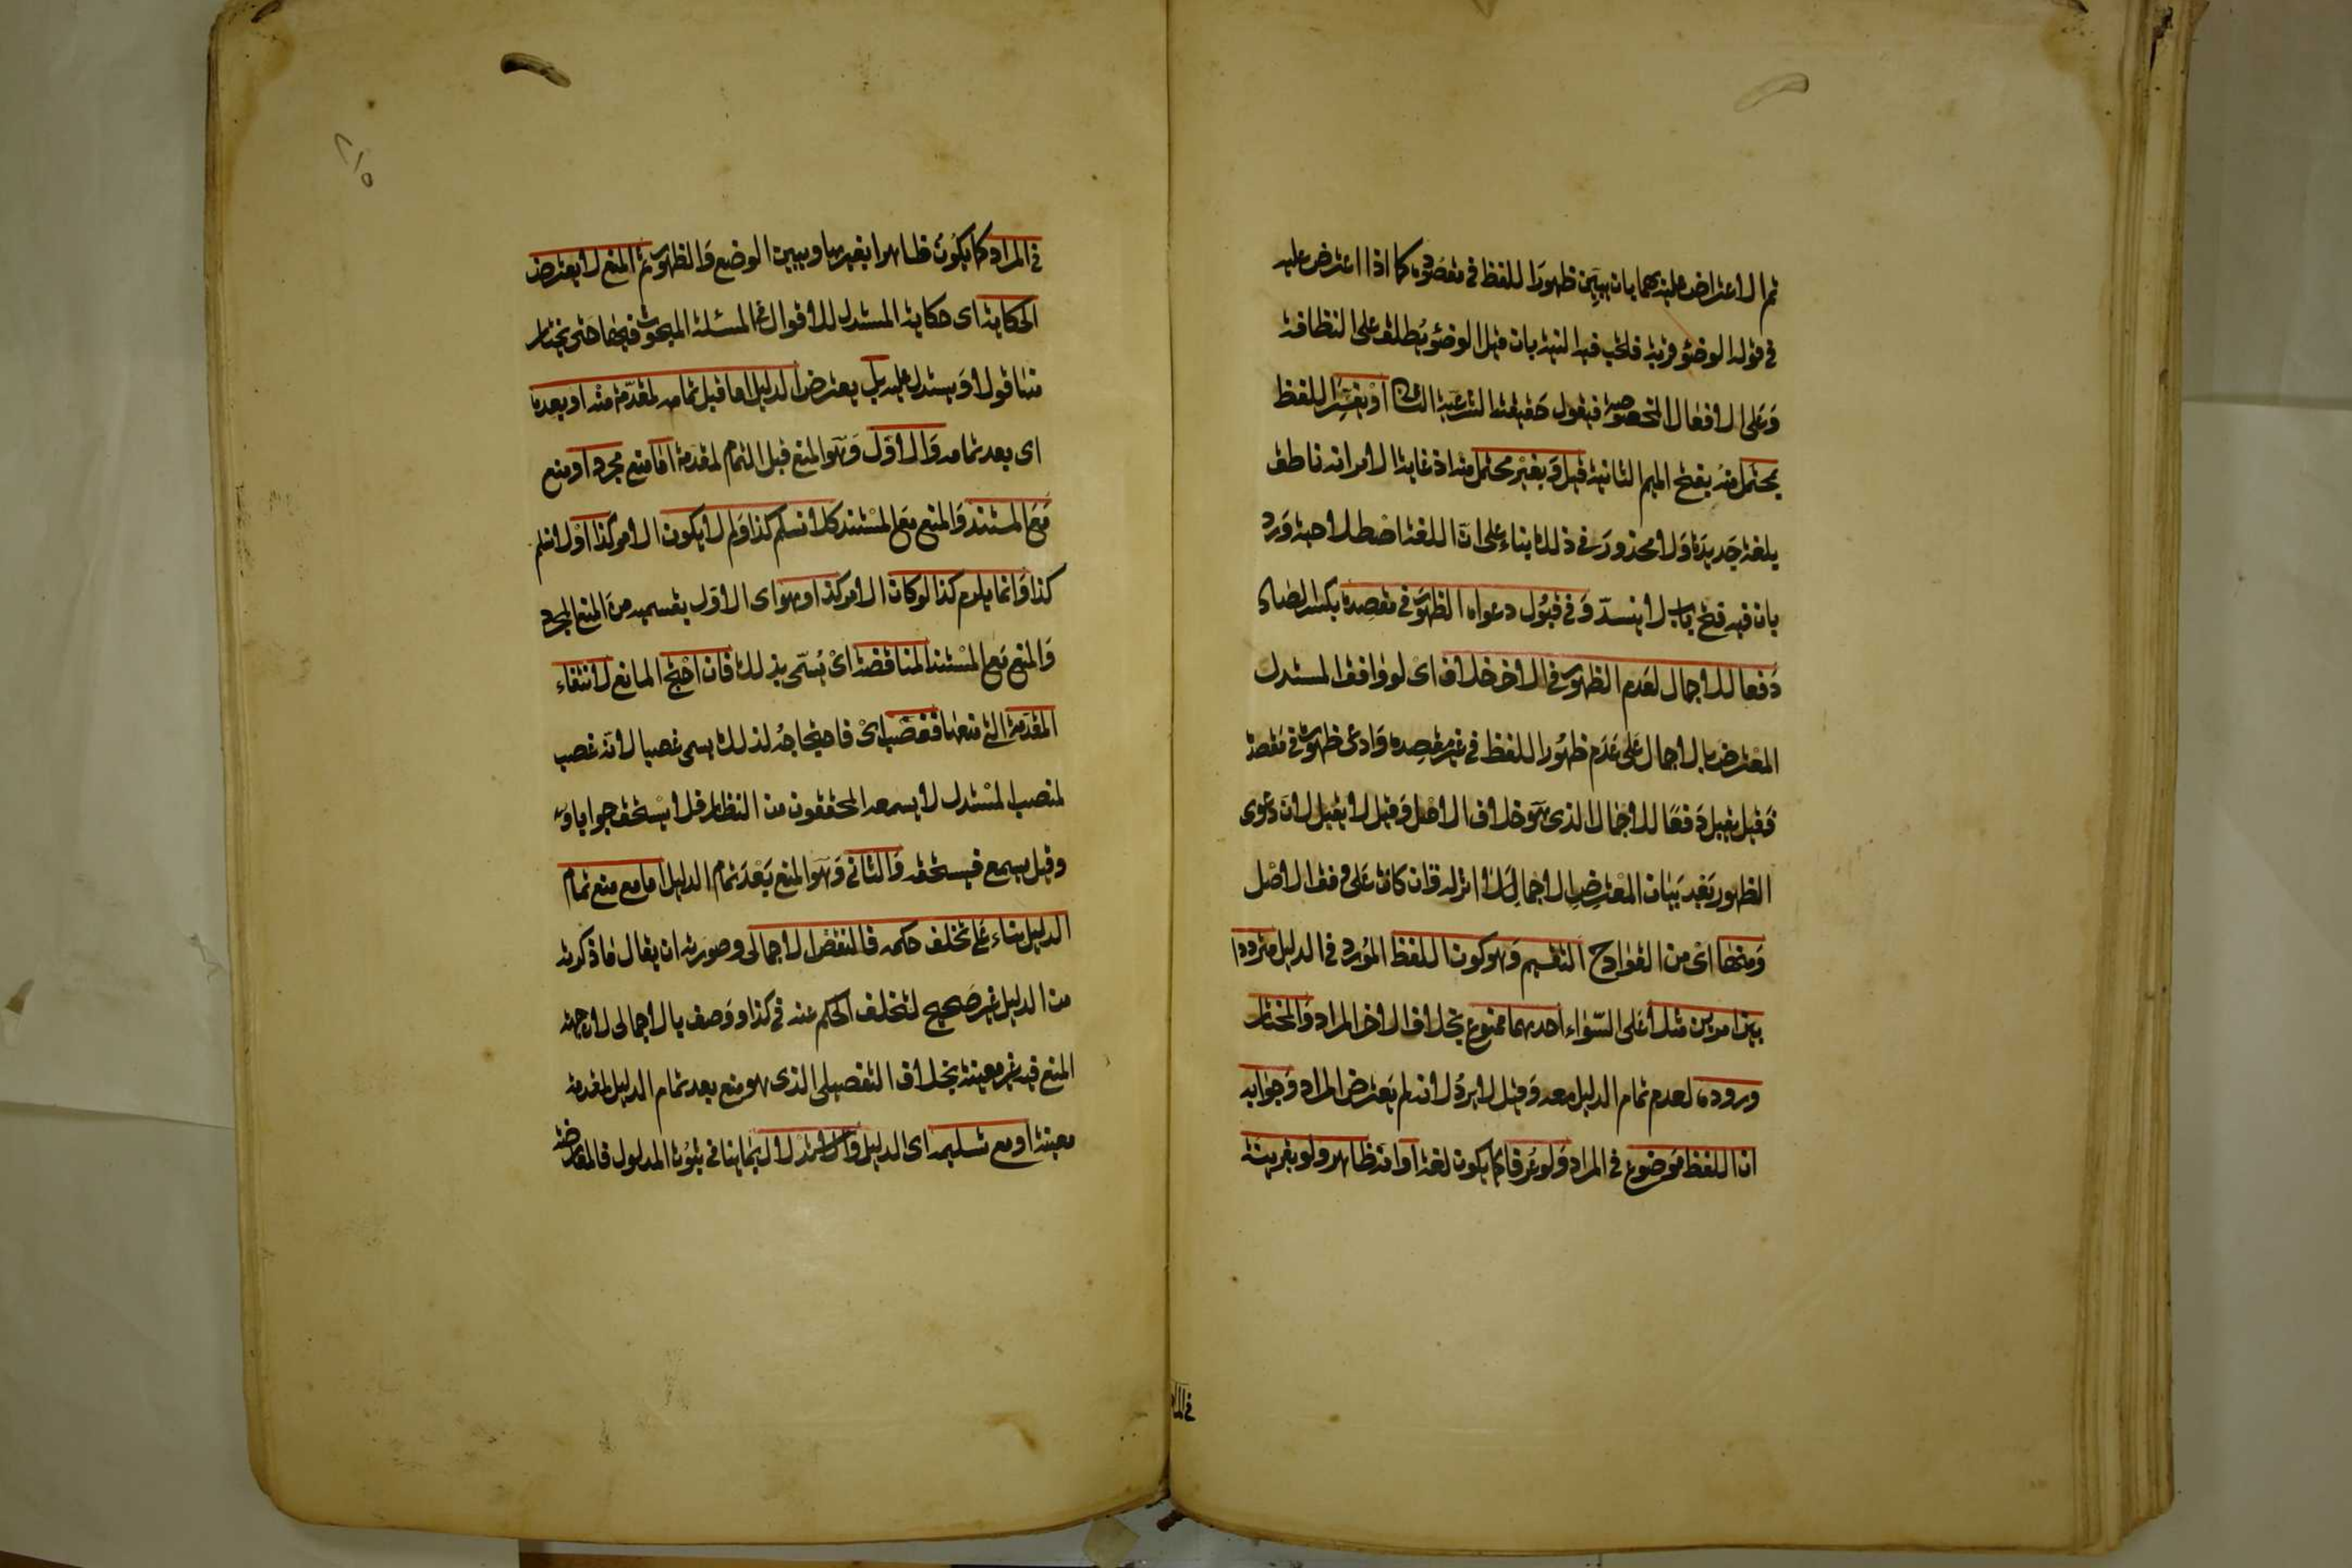 ثم الاعتراض عليهما بان يبين ظهور اللفظ في مقصوده كما اذا اعترض عليه
في قوله الوضوء قربة فلتجب فيه النية بان قيل الوضوء يطلق على النظافة
وعلى الافعال المخصوصة فيقول حقيقته الشرعية الثانى او يفسر اللفظ
بمحتمل منه بفتح الميم الثانية قيل وبغير محتمل منه اذ غاية الامر انه ناطق
بلغة جديدة ولا محذور في ذلك بناء على ان اللغة اصطلاحية ورد
بان فيه فتح باب لا ينسد وفي قبول دعواه الظهور في مقصده بكسر الصاد
دفعا للاجمال لعدم الظهور في الاخر خلاف اى لو وافق المستدل
المعترض بالاجمال على عدم ظهور اللفظ في غير مقصده وادعى ظهوره في مقصده
فقيل يقبل دفعا للاجمال الذى هو خلاف الاصل وقيل لا يقبل لان دعوى
الظهور بعد بيان المعترض الاجمال لا اثر له وان كانت على وفق الاصل
ومنها اى من القوادح التقسيم وهو كون اللفظ المورد في الدليل مترددا
بين امرين مثلا على السواء احدهما ممنوع بخلاف الاخر المراد والمختار
وروده لعدم تمام الدليل معه وقيل لا يرد لانه لم يعترض المراد وجوابه
ان اللفظ موضوع في المراد ولو عرفا كما يكون لغة او انه ظاهر ولو بقرينة
في المراد
في المراد كما يكون ظاهرا بغيرها ويبين الوضع والظهور ثم المنع لا يعترض
الحكاية اى حكاية المستدل للاقوال في المسئلة المبحوث فيها حتى يختار
منها قولا ويستدل عليه بل يعترض الدليل اما قبل تمامه لمقدمة منه او بعده
اى بعد تمامه والاول وهو المنع قبل التمام لمقدمة اما منع مجرد او منع
مع المستند والمنع مع المستند كلا نسلم كذا ولم لا يكون الامر كذا او لا نسلم
كذا وانما يلزم كذا لو كان الامر كذا وهو اى الاول بقسميه من المنع المجرد
والمنع مع المستند المناقضة اى يسمى بذلك فان احتج المانع لانتفاء
المقدمة التي منعها فغصب اى فاحتجاجه لذلك يسمى غصبا لانه غصب
لمنصب المستدل لا يسمعه المحققون من النظار فلا يستحق جوابا
وقيل يسمع فيستحقه والثانى وهو المنع بعد تمام الدليل اما مع منع تمام
الدليل بناء على تخلف حكمه فالنقض الاجمالى وصورته ان يقال ما ذكرته
من الدليل غير صحيح لتخلف الحكم عنه في كذا ووصف بالاجمالى لان جهة
المنع فيه غير معينة بخلاف التفصيلى الذى هو منع بعد تمام الدليل لمقدمة
معينة او مع تسليمه اى الدليل والاستدلال بما ينافي ثبوت المدلول فالمعارضة